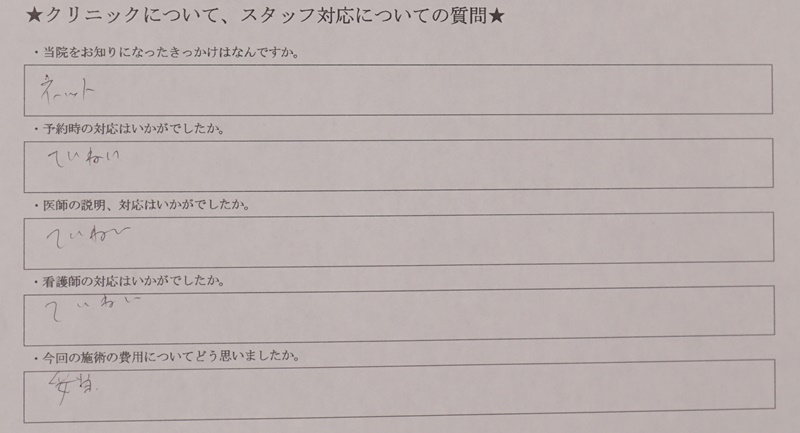 ★クリニックについて、スタッフ対応についての質問★
・当院をお知りになったきっかけはなんですか。
ネット
・予約時の対応はいかがでしたか。
ていねい
・医師の説明、対応はいかがでしたか。
ていねい
・看護師の対応はいかがでしたか。
ていねい
・今回の施術の費用についてどう思いましたか。
妥当.